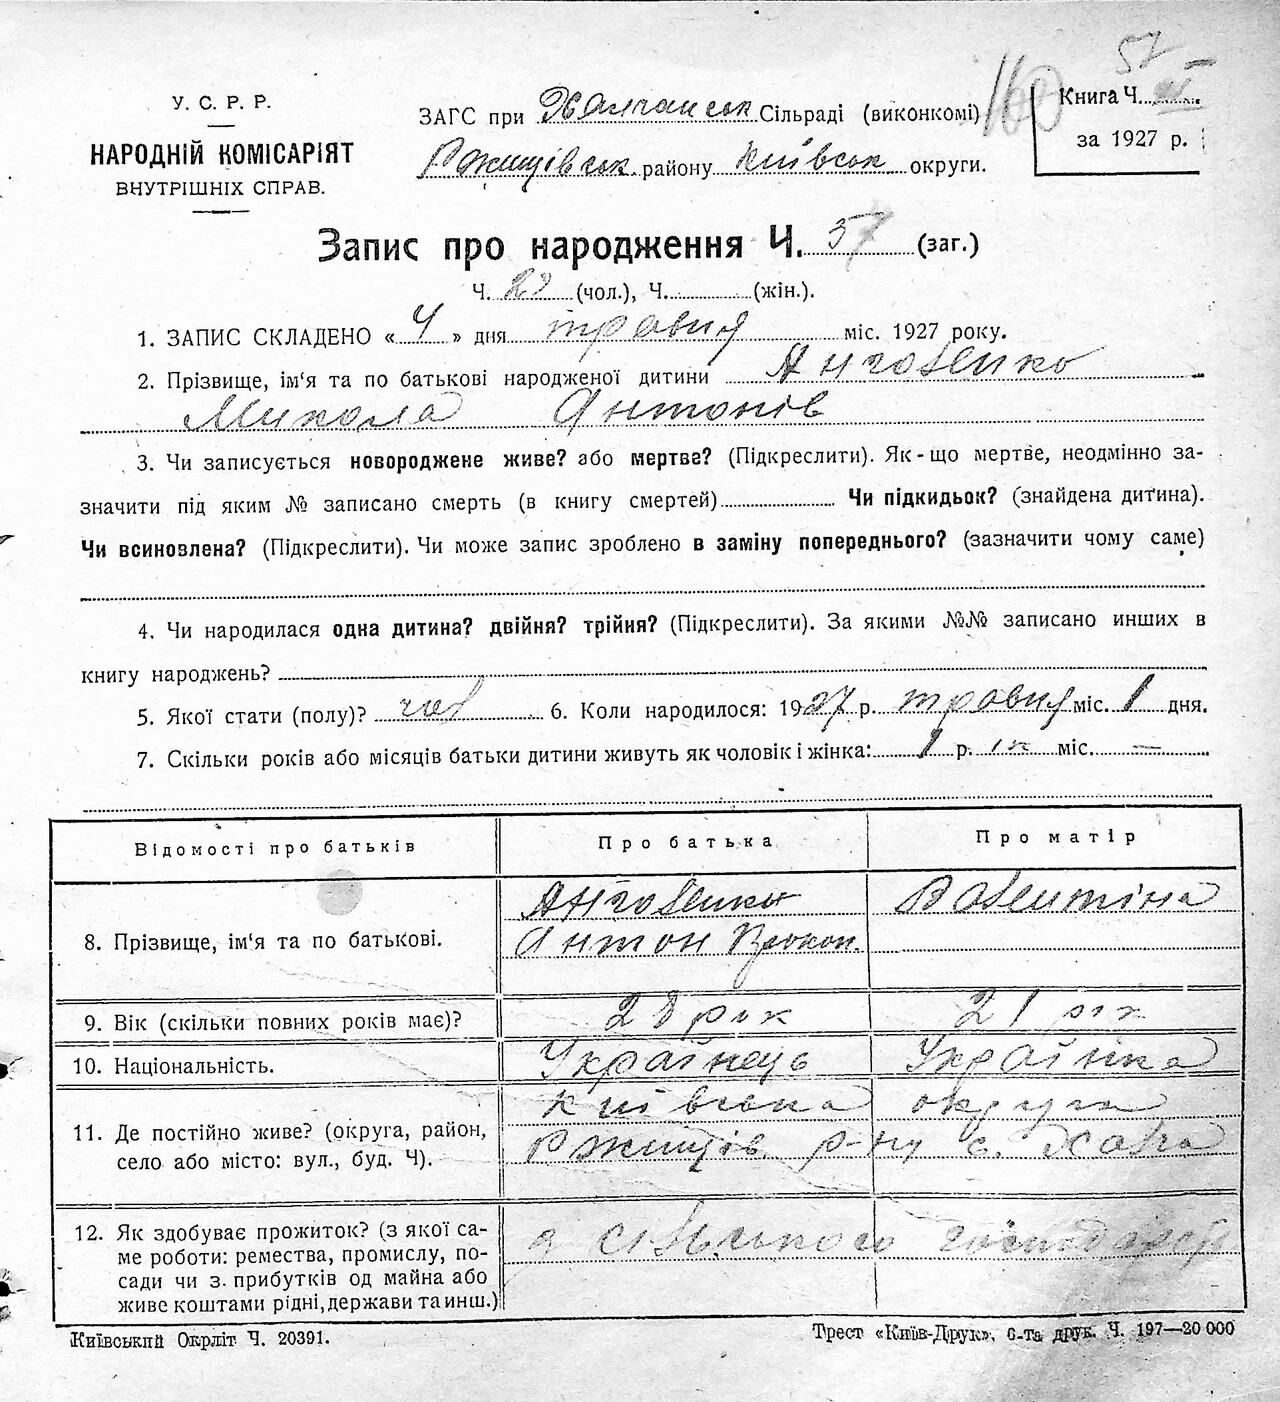 57
У. С. Р. Р.
НАРОДНІЙ КОМІСАРІЯТ
ВНУТРІШНІХ СПРАВ.
ЗАГС при Халчанськ Сільраді (виконкомі)
Ржищівськ. району Київськ округи.
160
Книга Ч.
за 1927 р.
Запис про народження Ч. 57 (заг.)
Ч. (чол.), Ч. (жін.).
1. ЗАПИС СКЛАДЕНО « 4 » дня травня міс. 1927 року.
2. Прізвище, ім‘я та по батькові народженої дитини
Микола Антонів
3. Чи записується новороджене живе? або мертве? (Підкреслити). Як-що мертве, неодмінно за-
значити під яким № записано смерть (в книгу смертей) Чи підкидьок? (знайдена дитина).
Чи всиновлена? (Підкреслити). Чи може запис зроблено в заміну попереднього? (зазначити чому саме)
4. Чи народилася одна дитина? двійня? трійня? (Підкреслити). За якими №№ записано инших в
книгу народжень?
5. Якої стати (полу)? чол 6. Коли народилося: 1927 р. травня міс. 1 дня.
7. Скільки років або місяців батьки дитини живуть як чоловік і жінка: 1 р. ік міс. —
Відомості про батьків
Про батька
Про матір
8. Прізвище, ім‘я та по батькові.
Антон Прокоп.
Валентіна
9. Вік (скільки повних років має)?
28 рік
21 рік
10. Національність.
Українець
Українка
11. Де постійно живе? (округа, район,
село або місто: вул., буд. Ч).
Київська округа
Ржищів р-ну с. Халча
12. Як здобуває прожиток? (з якої са-
ме роботи: ремества, промислу, по-
сади чи з. прибутків од майна або
живе коштами рідні, держави та инш.)
з сільського господарств
Київський Окрліт Ч. 20391.
Трест «Київ-Друк», 6-та друк. Ч. 197—20 000